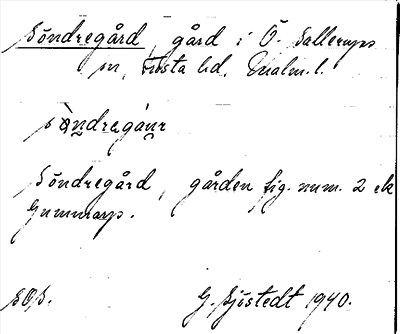 Söndregård, gård i Ö. Sallerups
sn, Frosta hd, Malm. l.
Söndregård, gården fig. num. 2 ek
Gummarp.
G. Sjöstedt 1940.